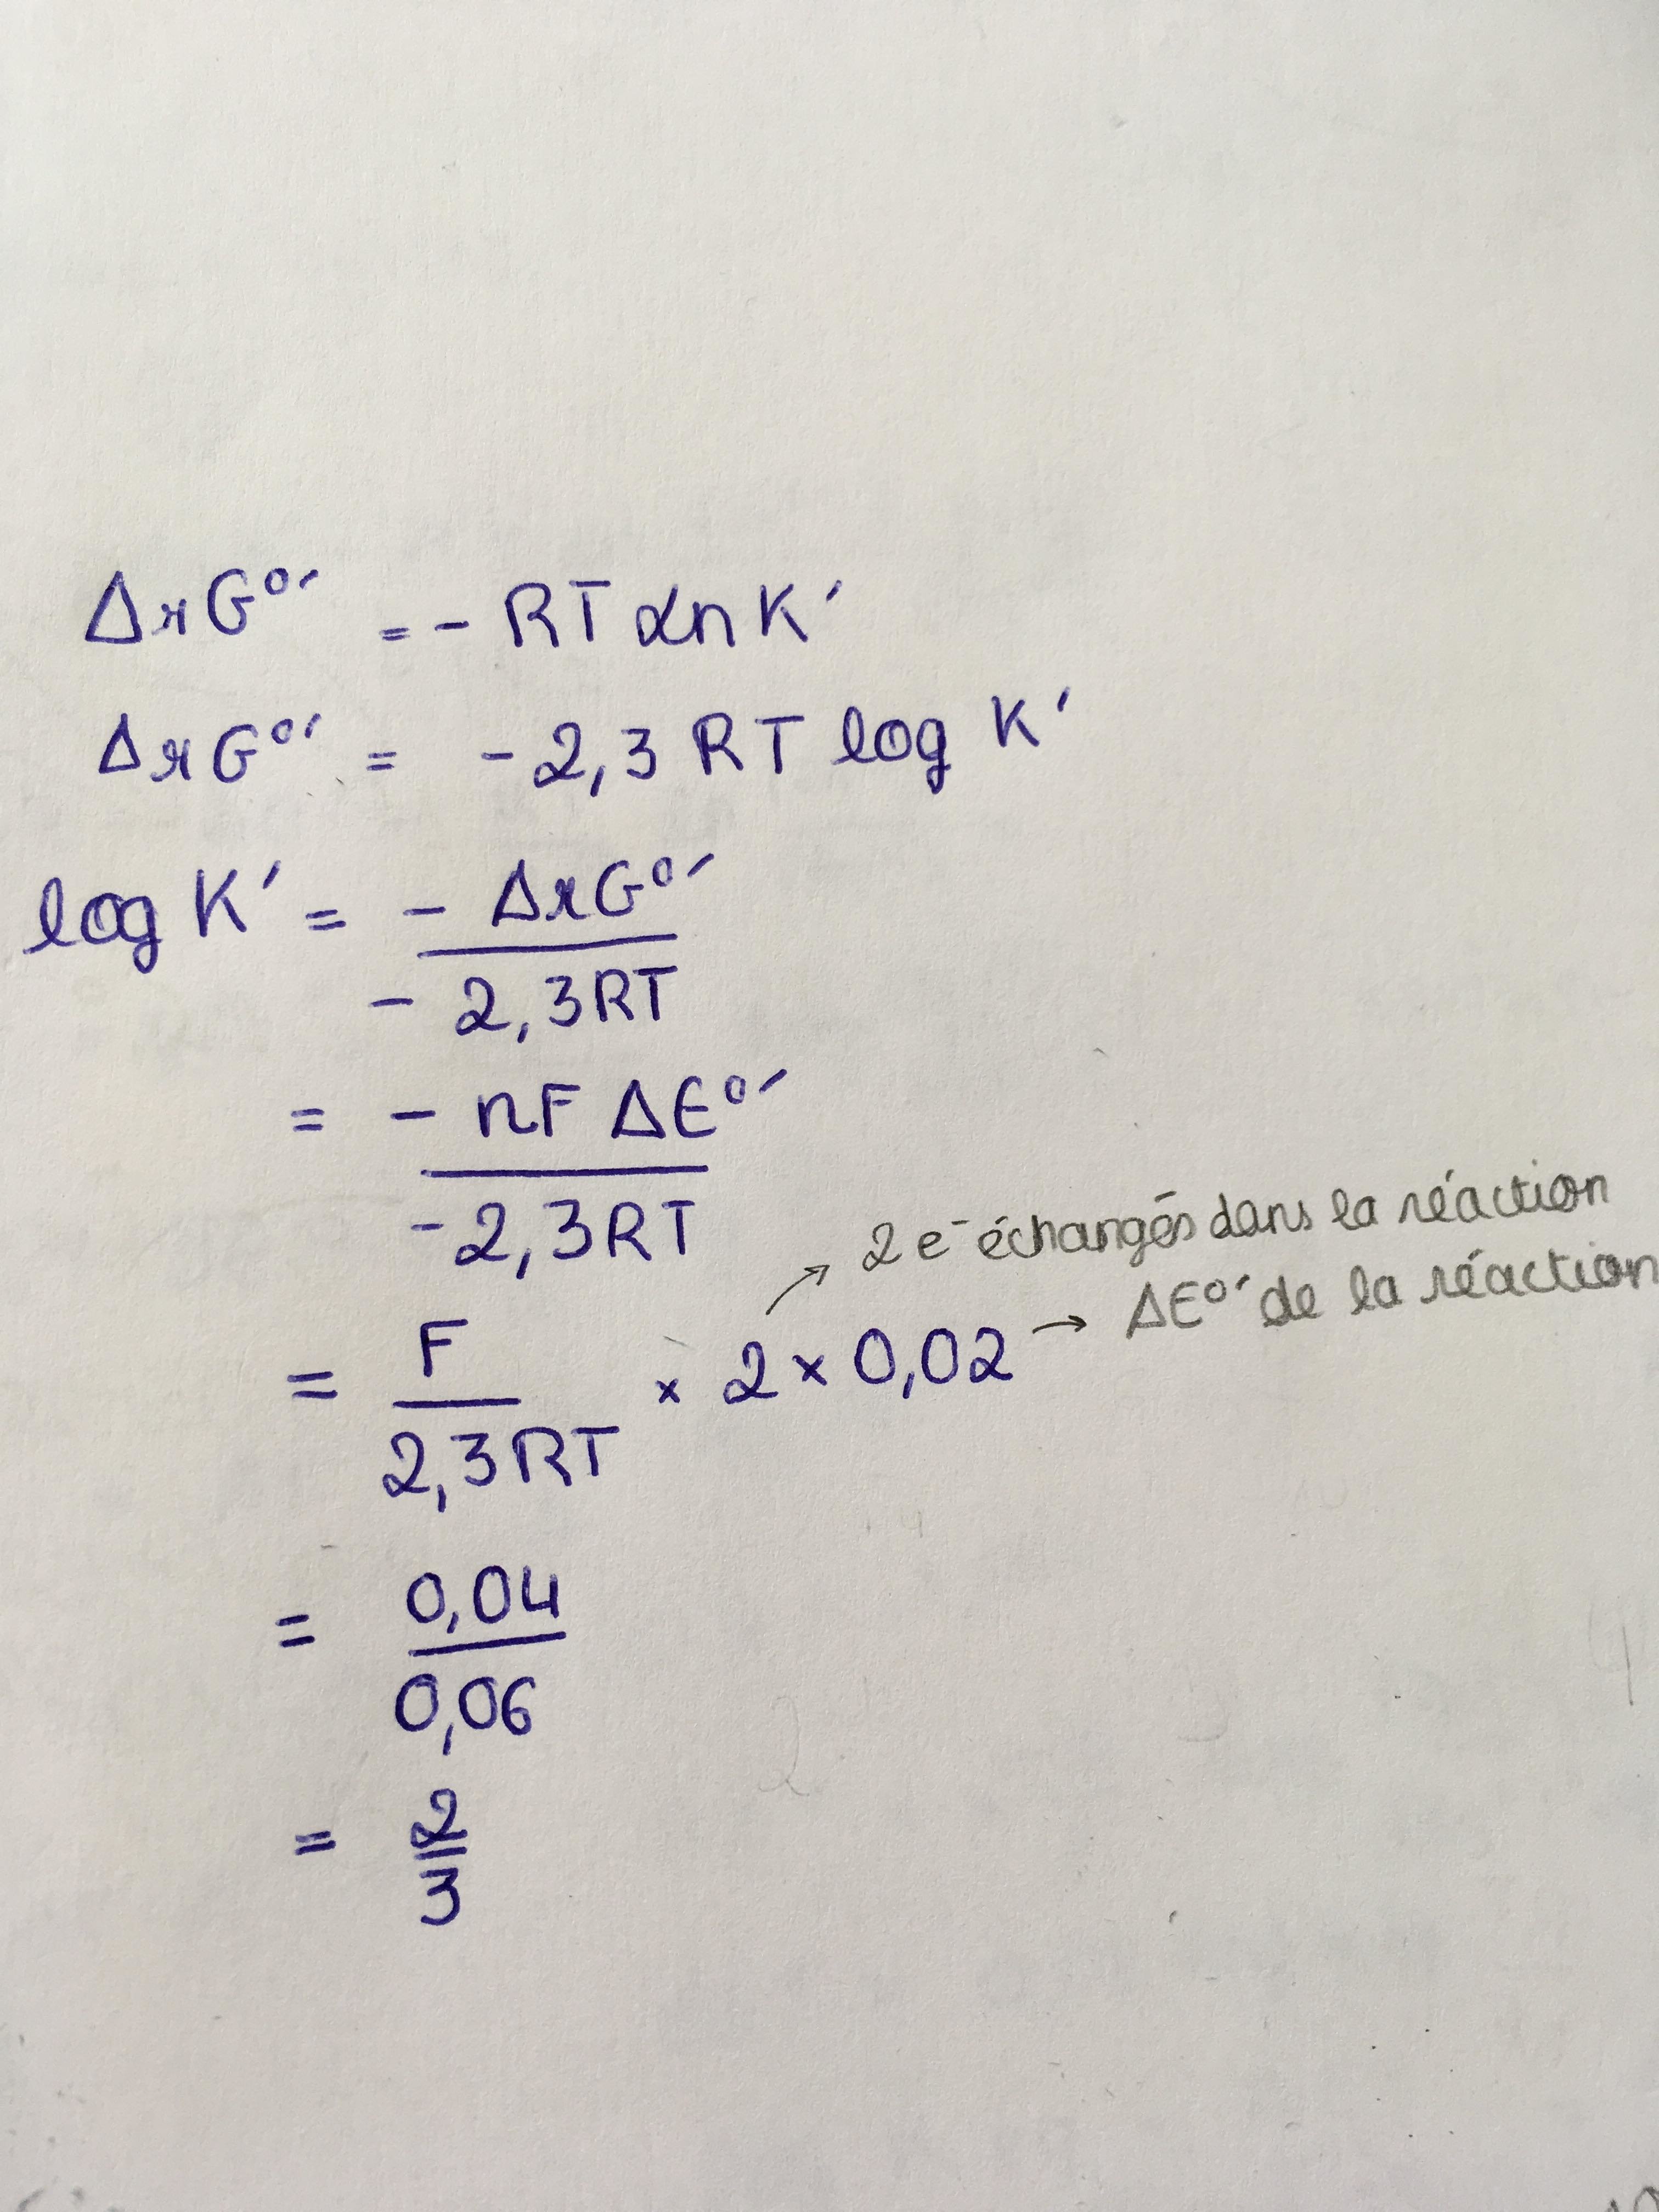 ΔrG°' = - RT ln K'
ΔrG°' = - 2,3 RT log K'
log K' = - ΔrG°'
- 2,3RT
= - nF ΔE°'
-2,3RT
2 e⁻ échangés dans la réaction
= F × 2 × 0,02 → ΔE°' de la réaction
2,3RT
= 0,04
0,06
= 2
3